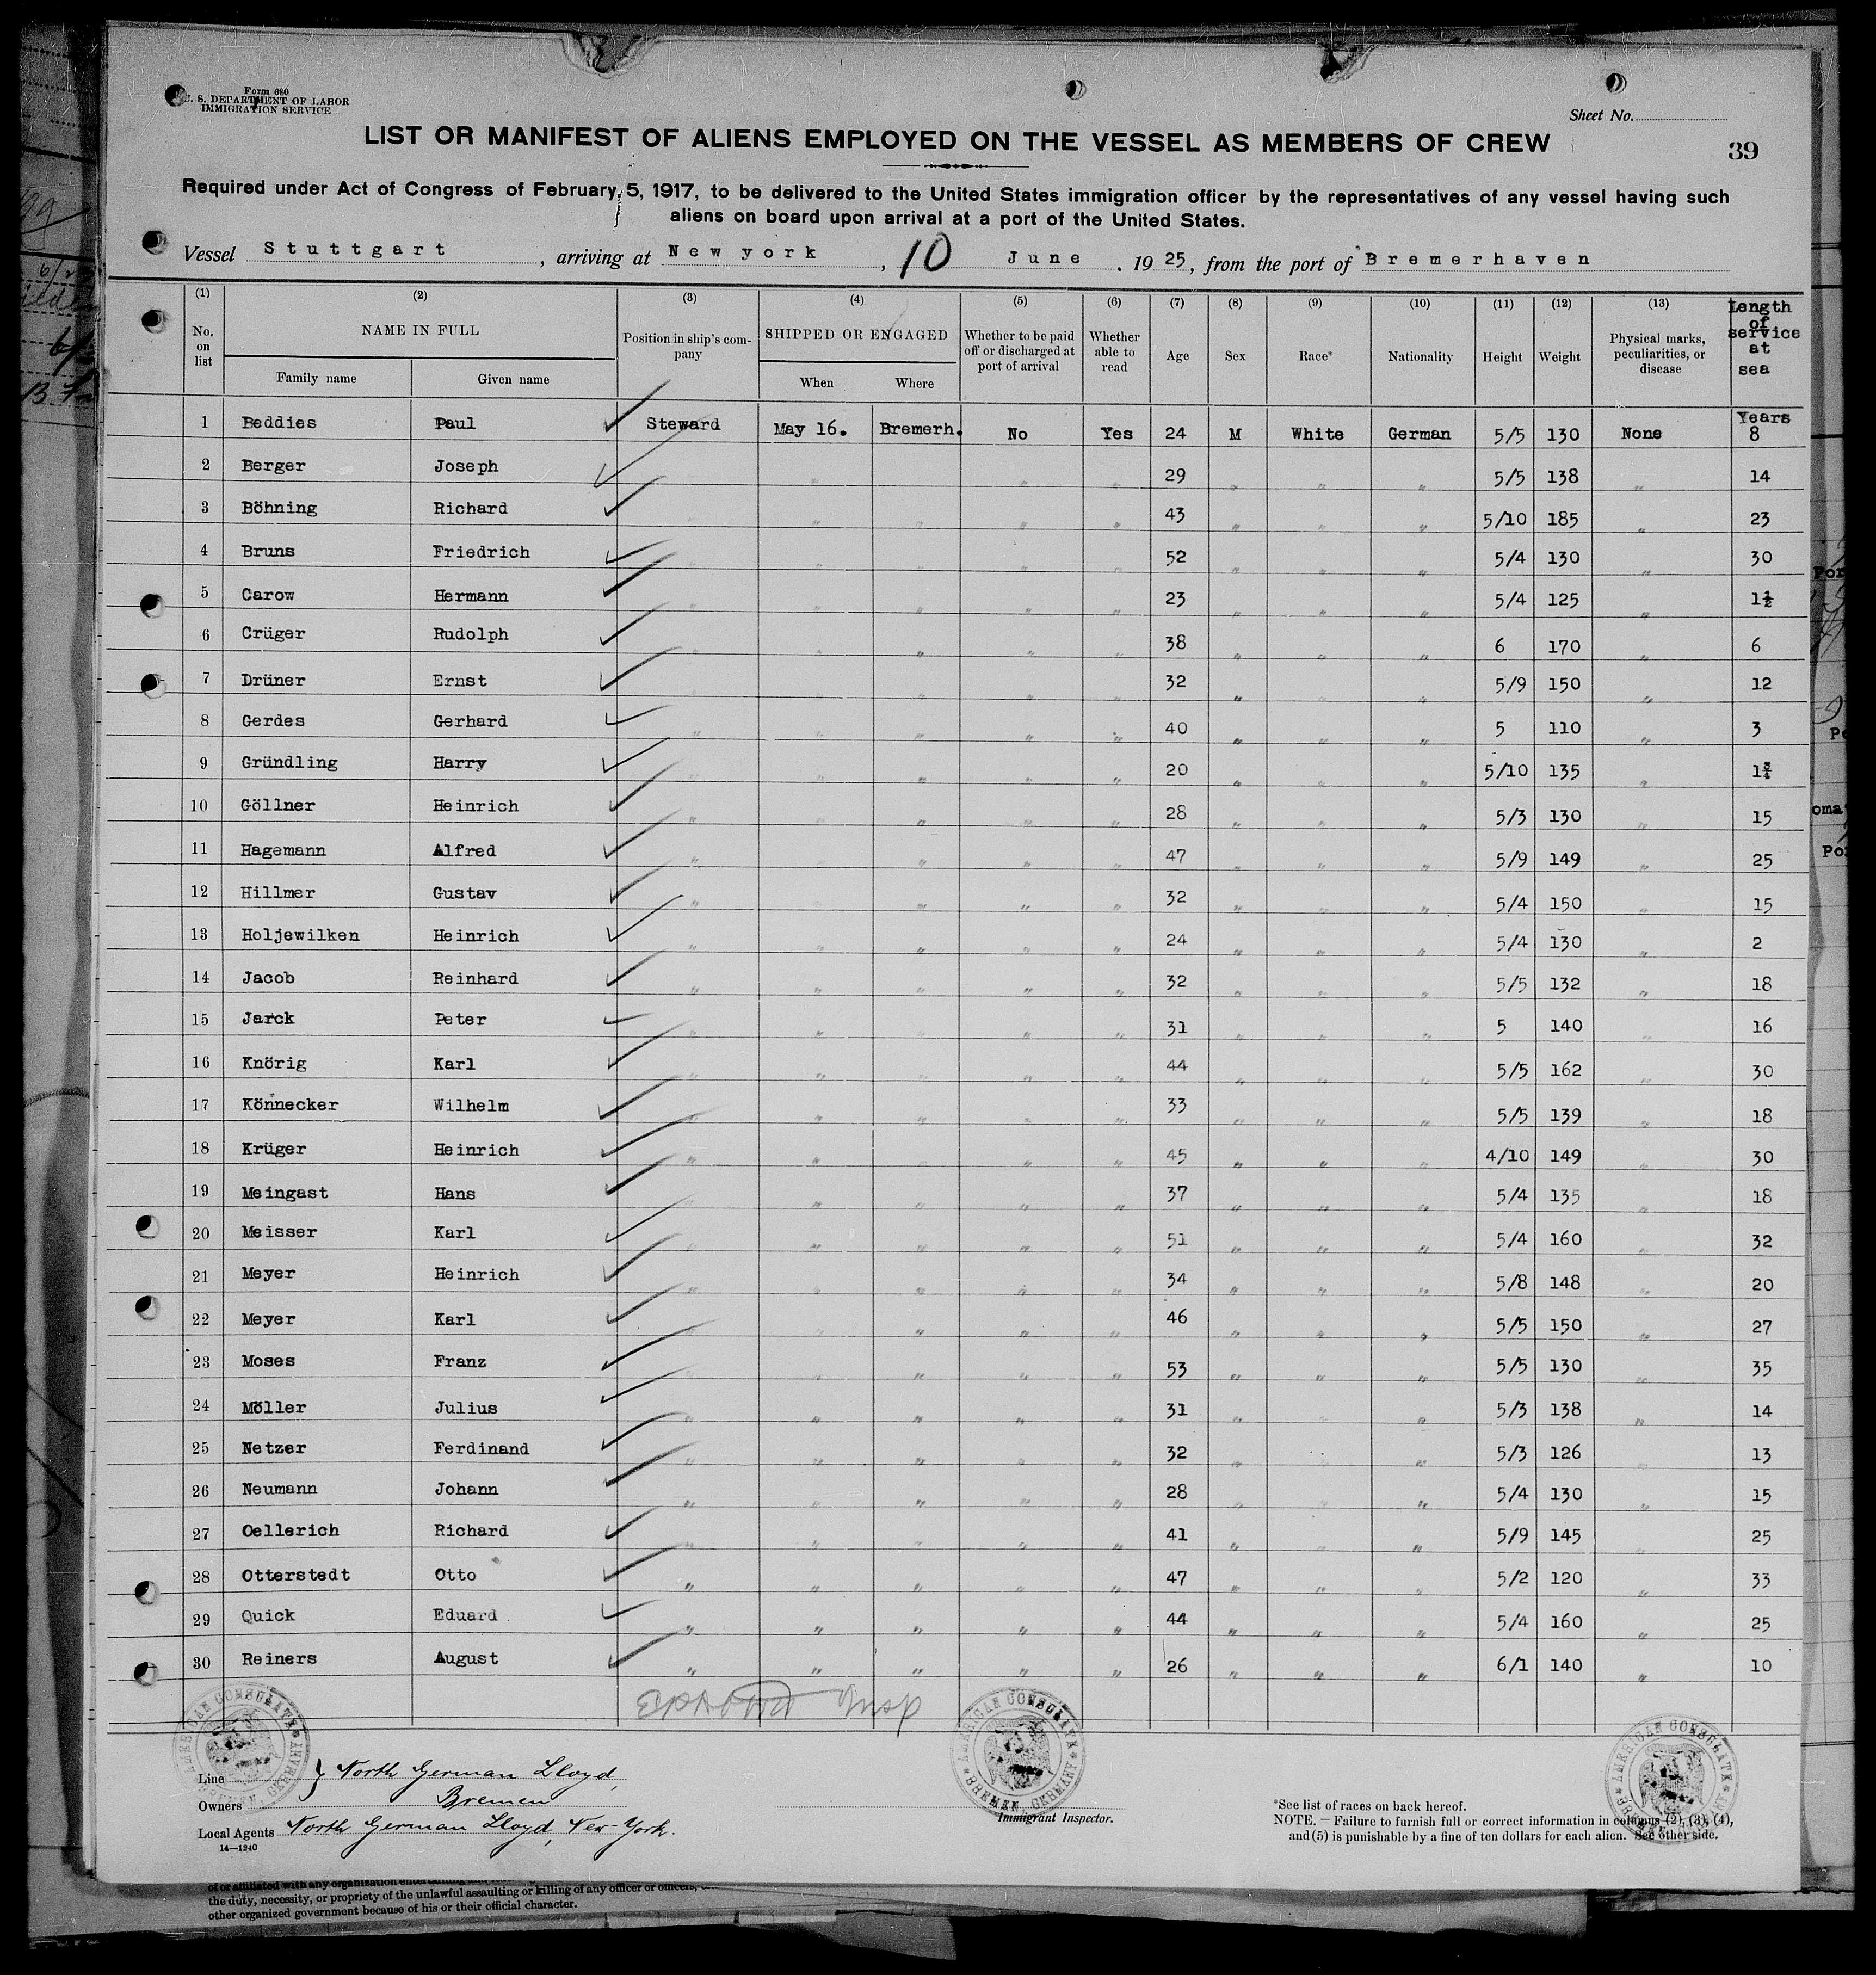 Form 680
U. S. DEPARTMENT OF LABOR
IMMIGRATION SERVICE
Sheet No.
LIST OR MANIFEST OF ALIENS EMPLOYED ON THE VESSEL AS MEMBERS OF CREW
39
Required under Act of Congress of February 5, 1917, to be delivered to the United States immigration officer by the representatives of any vessel having such
aliens on board upon arrival at a port of the United States.
Vessel Stuttgart, arriving at New york, 10 June, 1925, from the port of Bremerhaven
(1) (2) (3) (4) (5) (6) (7) (8) (9) (10) (11) (12) (13) Length of service at sea
No. on list NAME IN FULL Position in ship's company SHIPPED OR ENGAGED Whether to be paid off or discharged at port of arrival Whether able to read Age Sex Race* Nationality Height Weight Physical marks, peculiarities, or disease
Family name Given name When Where
Years
1 Beddies Paul Steward May 16. Bremerh. No Yes 24 M White German 5/5 130 None 8
2 Berger Joseph " " " " 29 " " " 5/5 138 " 14
3 Böhning Richard " " " " " 43 " " " 5/10 185 " 23
4 Bruns Friedrich " " " " " 52 " " " 5/4 130 " 30
5 Carow Hermann " " " " " 23 " " " 5/4 125 " 1½
6 Crüger Rudolph " " " " " 38 " " " 6 170 " 6
7 Drüner Ernst " " " " " 32 " " " 5/9 150 " 12
8 Gerdes Gerhard " " " " " 40 " " " 5 110 " 3
9 Gründling Harry " " " " " 20 " " " 5/10 135 " 1¾
10 Göllner Heinrich " " " " " 28 " " " 5/3 130 " 15
11 Hagemann Alfred " " " " " 47 " " " 5/9 149 " 25
12 Hillmer Gustav " " " " " 32 " " " 5/4 150 " 15
13 Holjewilken Heinrich " " " " " 24 " " " 5/4 130 " 2
14 Jacob Reinhard " " " " " 32 " " " 5/5 132 " 18
15 Jarck Peter " " " " " 31 " " " 5 140 " 16
16 Knörig Karl " " " " " 44 " " " 5/5 162 " 30
17 Könnecker Wilhelm " " " " " 33 " " " 5/5 139 " 18
18 Krüger Heinrich " " " " " 45 " " " 4/10 149 " 30
19 Meingast Hans " " " " " 37 " " " 5/4 135 " 18
20 Meisser Karl " " " " " 51 " " " 5/4 160 " 32
21 Meyer Heinrich " " " " " 34 " " " 5/8 148 " 20
22 Meyer Karl " " " " " 46 " " " 5/5 150 " 27
23 Moses Franz " " " " " 53 " " " 5/5 130 " 35
24 Möller Julius " " " " " 31 " " " 5/3 138 " 14
25 Netzer Ferdinand " " " " " 32 " " " 5/3 126 " 13
26 Neumann Johann " " " " " 28 " " " 5/4 130 " 15
27 Oellerich Richard " " " " " 41 " " " 5/9 145 " 25
28 Otterstedt Otto " " " " " 47 " " " 5/2 120 " 33
29 Quick Eduard " " " " " 44 " " " 5/4 160 " 25
30 Reiners August " " " " " 26 " " " 6/1 140 " 10
AMERICAN CONSULATE BREMEN, GERMANY
AMERICAN CONSULATE BREMEN, GERMANY
AMERICAN CONSULATE BREMEN, GERMANY
Line } North German Lloyd,
Owners Bremen
Local Agents North German Lloyd, New-York.
14—1240
Immigrant Inspector.
*See list of races on back hereof.
NOTE. — Failure to furnish full or correct information in columns (2), (3), (4),
and (5) is punishable by a fine of ten dollars for each alien. See other side.
the duty, necessity, or propriety of the unlawful assaulting or killing of any officer or officers,
other organized government because of his or their official character.